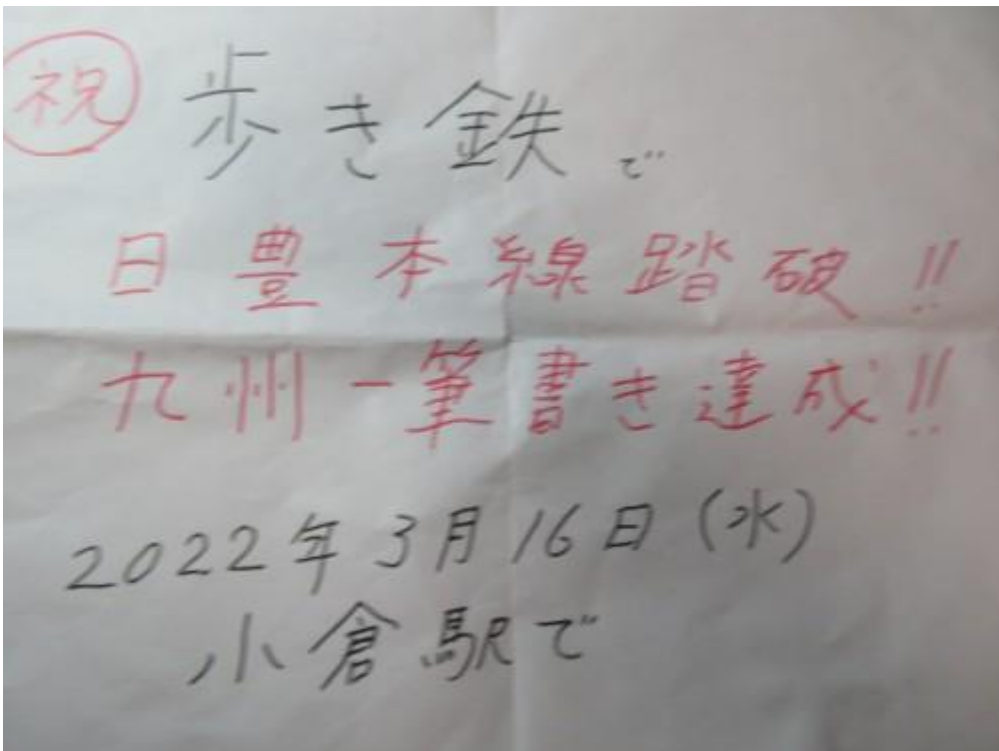 祝 歩き鉄で
日豊本線踏破!!
九州一筆書き達成!!
2022年3月16日(水)
小倉駅で